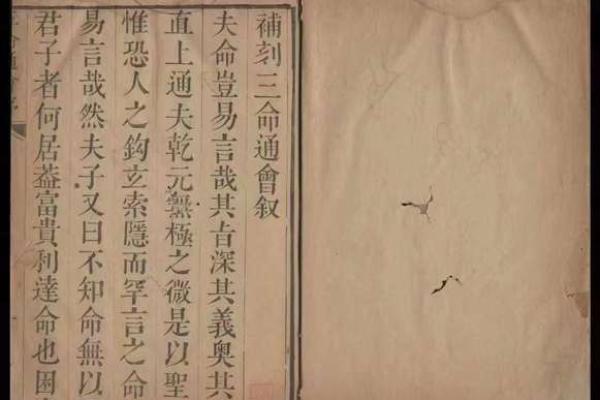 補刻三命通會叙
夫命豈易言哉其㫖深其義奧其
直上通夫乾元無極之微是以聖
惟恐人之鈎玄索隱而罕言之命
易言哉然夫子又曰不知命無以
君子者何居葢富貴利達命也困